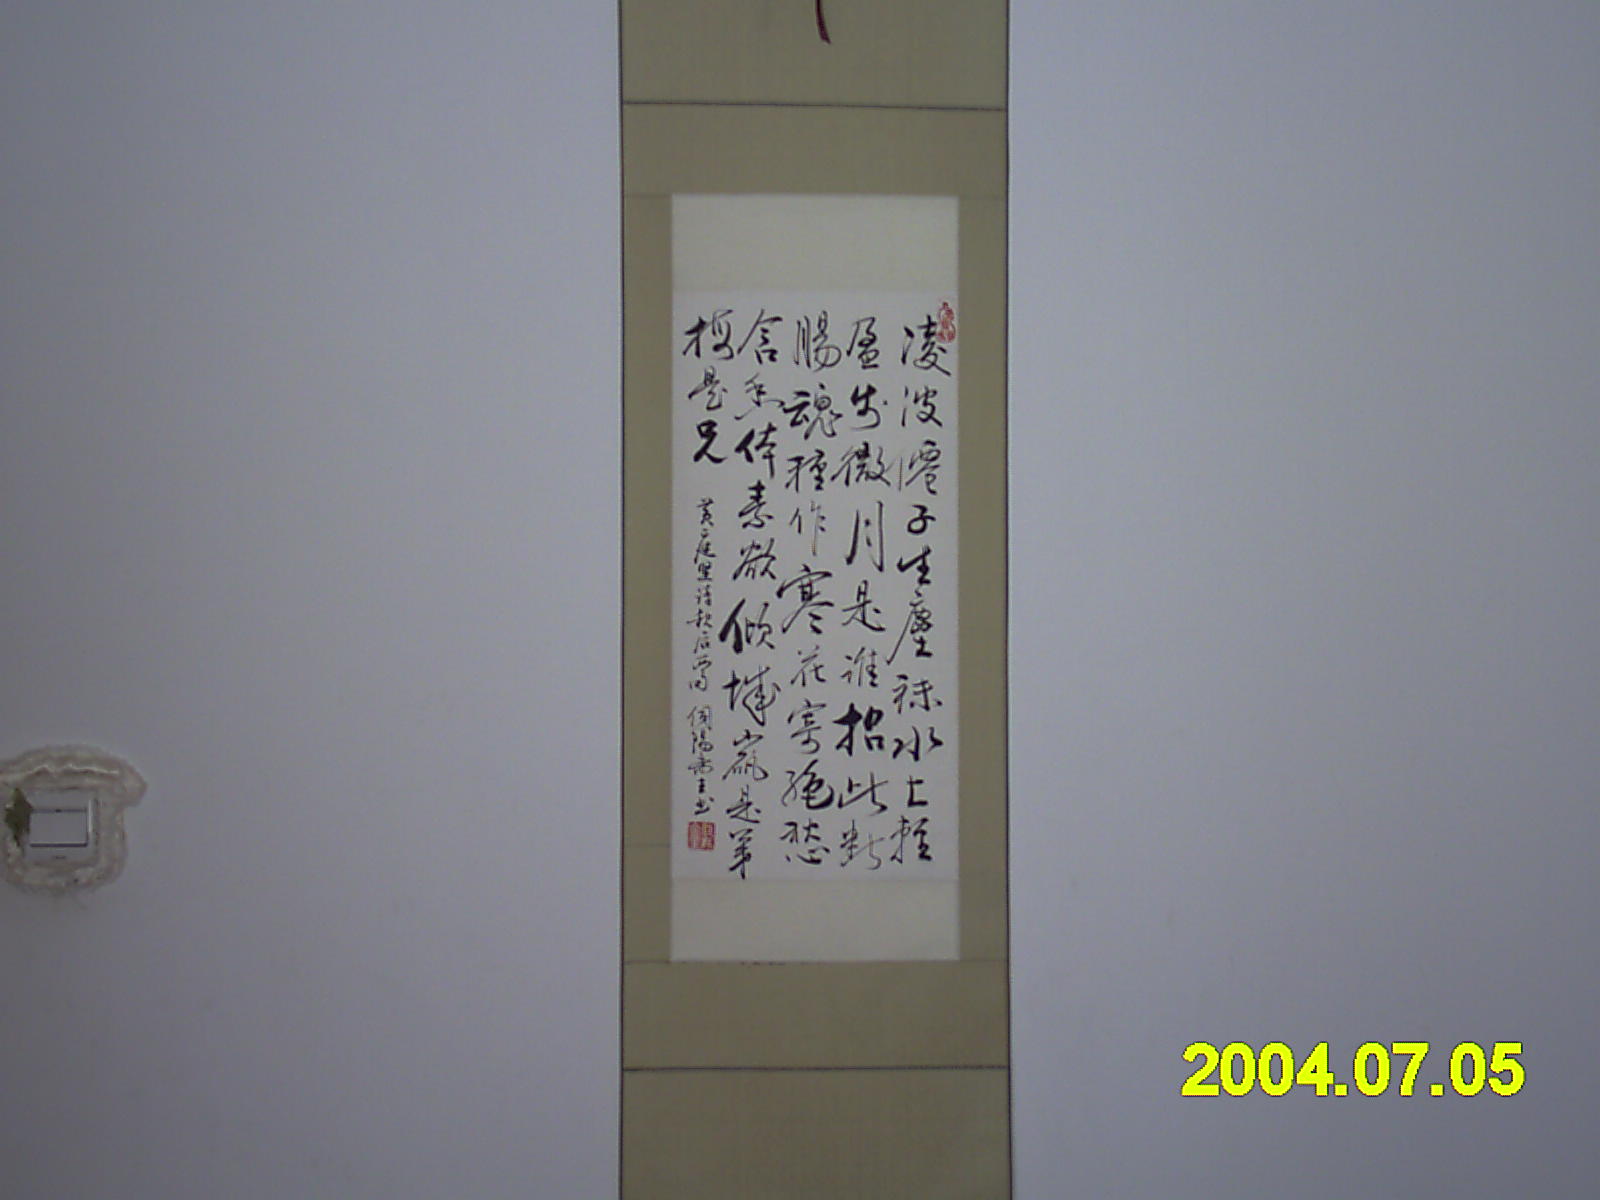 凌波僊子生塵襪水上輕
盈步微月是誰招此斷
腸魂種作寒花寄絶愁
含香体素欲傾城山礬是弟
梅是兄
黄庭堅詩
書
2004.07.05